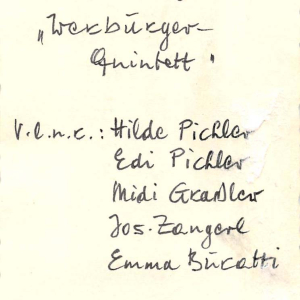 „Werbürger-
Quintett"
V.l.n.r.: Hilde Pichler
Edi Pichler
Midi Graßler
Jos. Zangerl
Emma Bucatti